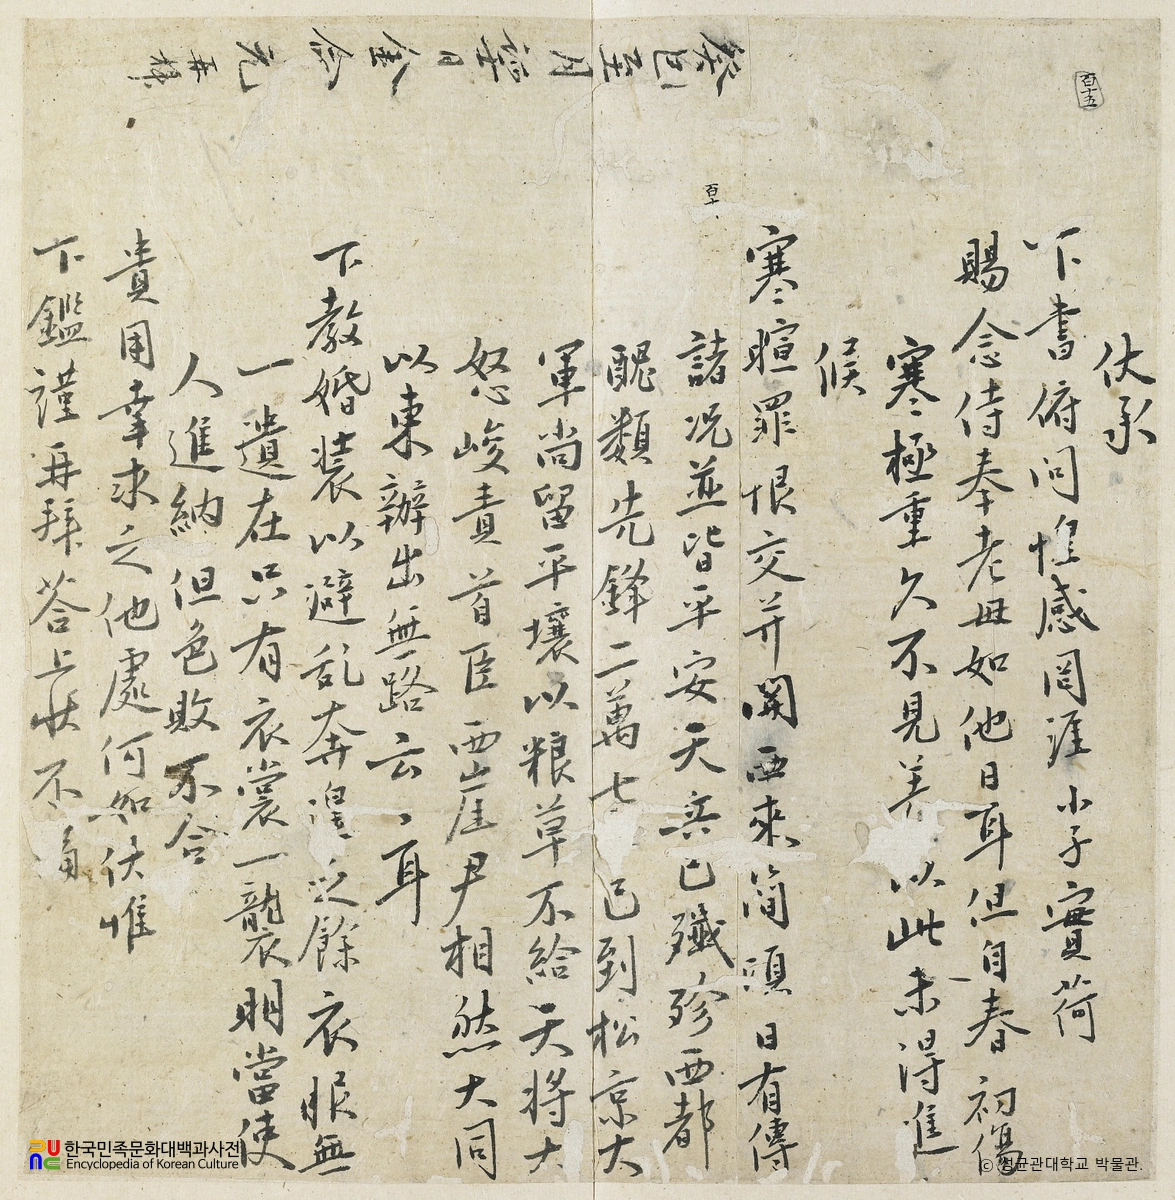 百十五
伏承
下書俯問惟感罔涯小子實荷
賜念侍奉老母如他日耳但自春初傷
寒極重久不見差以此未得進
候
百十
寒暄罪恨交幷關西來簡頭日有傳
諸況並皆平安天兵已殲殄西都
醜類先鋒二萬七已到松京大
軍尚留平壤以粮草不給天將大
怒峻責首臣西崖尹相然大同
以東辦出無路云云耳
下敎婚裝以避乱奔遑之餘衣服無
一遺在只有衣裳一襲明當使
人進納但色敗不合
貴用幸求之他處何如伏惟
下鑑謹再拜答上狀不備
癸巳正月 日 金 元 再拜
한국민족문화대백과사전
Encyclopedia of Korean Culture
© 성균관대학교 박물관.